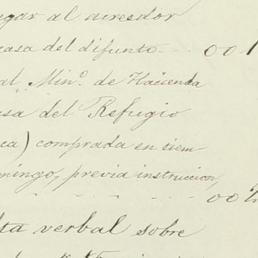 ugar al acreedor
casa del difunto 001
al Minº. de Hacienda
asa del Refugio
ca) comprada en tiem-
mingo, previa instruccion,
002
ta verbal sobre